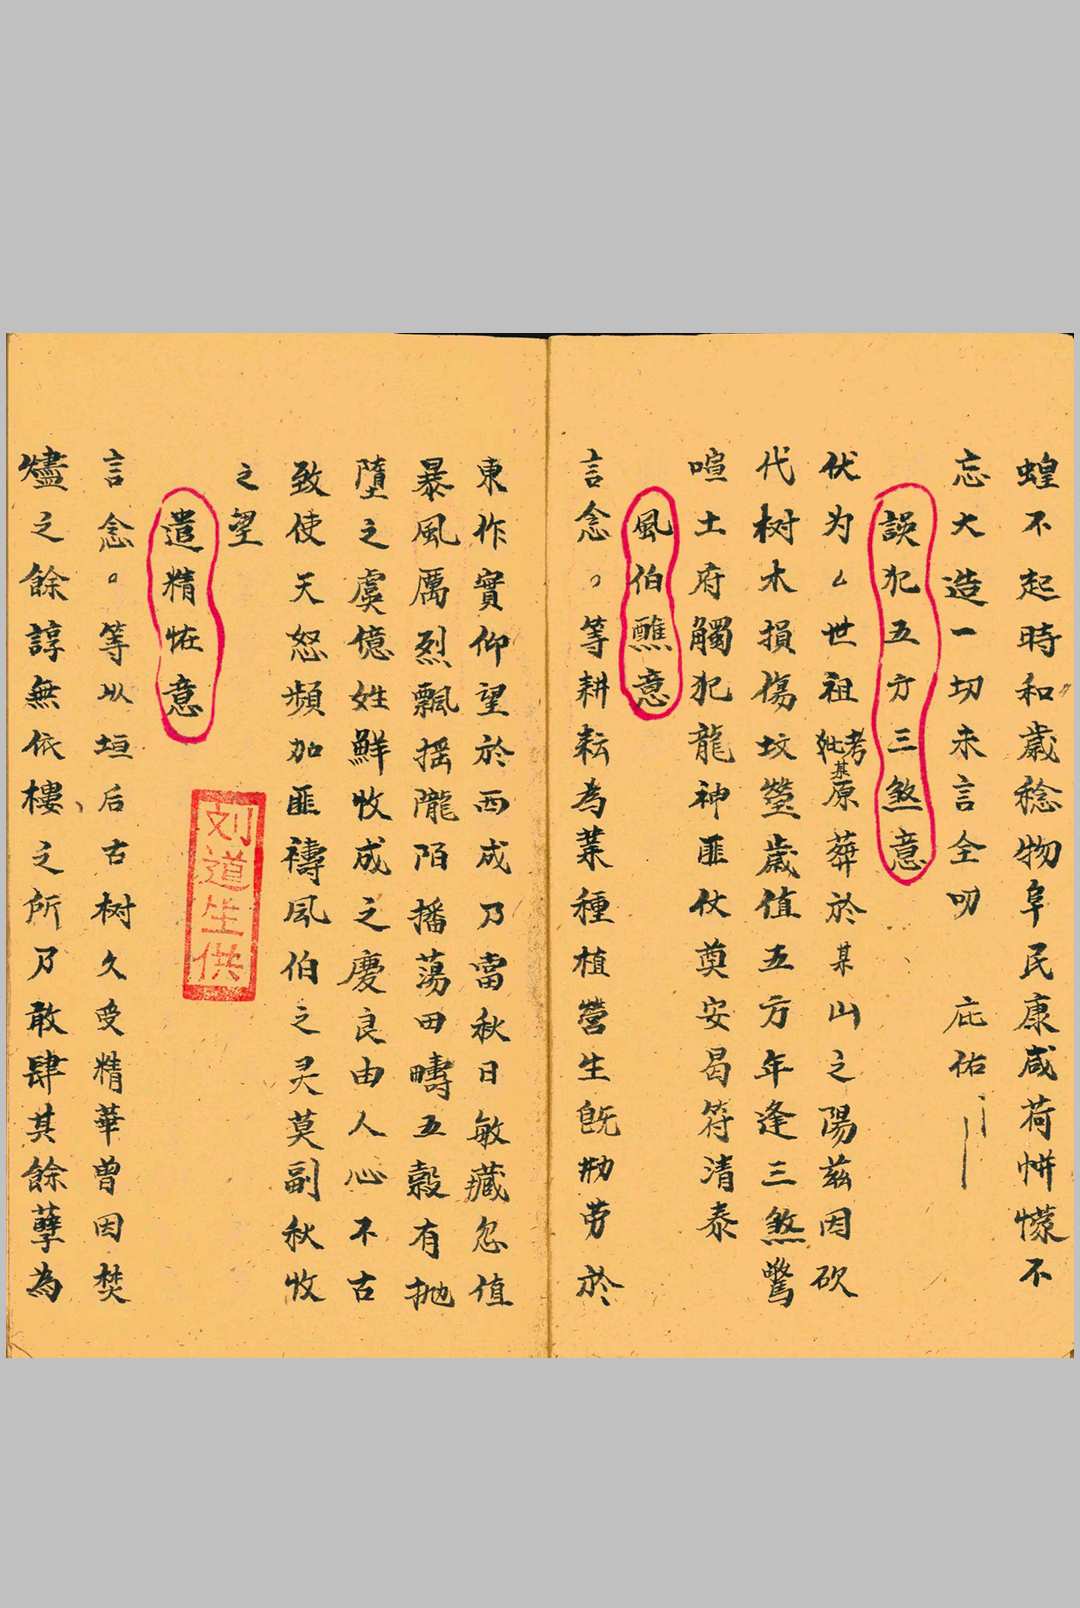 蝗不起時和歲稔物阜民康咸荷帡幪不
忘大造一切未言全叨　庇佑
誤犯五方三煞意
伏为厶世祖考妣某原葬於某山之陽茲因砍
代树木損傷坟塋歲值五方年逢三煞驚
喧土府觸犯龍神匪仗奠安曷符清泰
風伯醮意
言念。等耕耘為業種植營生既勤劳於
東作實仰望於西成乃當秋日敏藏忽值
暴風厲烈飄揺隴陌播蕩田疇五穀有抛
墮之虞億姓鮮收成之慶良由人心不古
致使天怒頻加匪禱风伯之灵莫副秋收
之望
遣精恠意
言念。等以垣后古树久受精華曾因焚
燼之餘諄無依樓之所乃敢肆其餘孽為
刘道生供